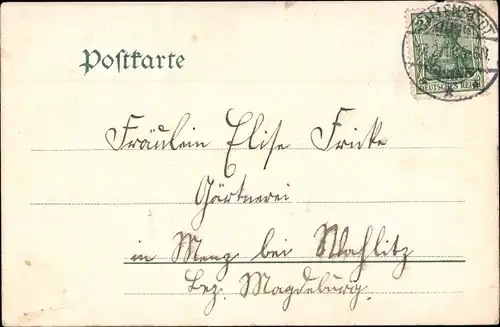 Postkarte
DEUTSCHES REICH
Fräulein Elise Fricke
Gärtnerei
in Menz bei Wahlitz
Bez. Magdeburg.